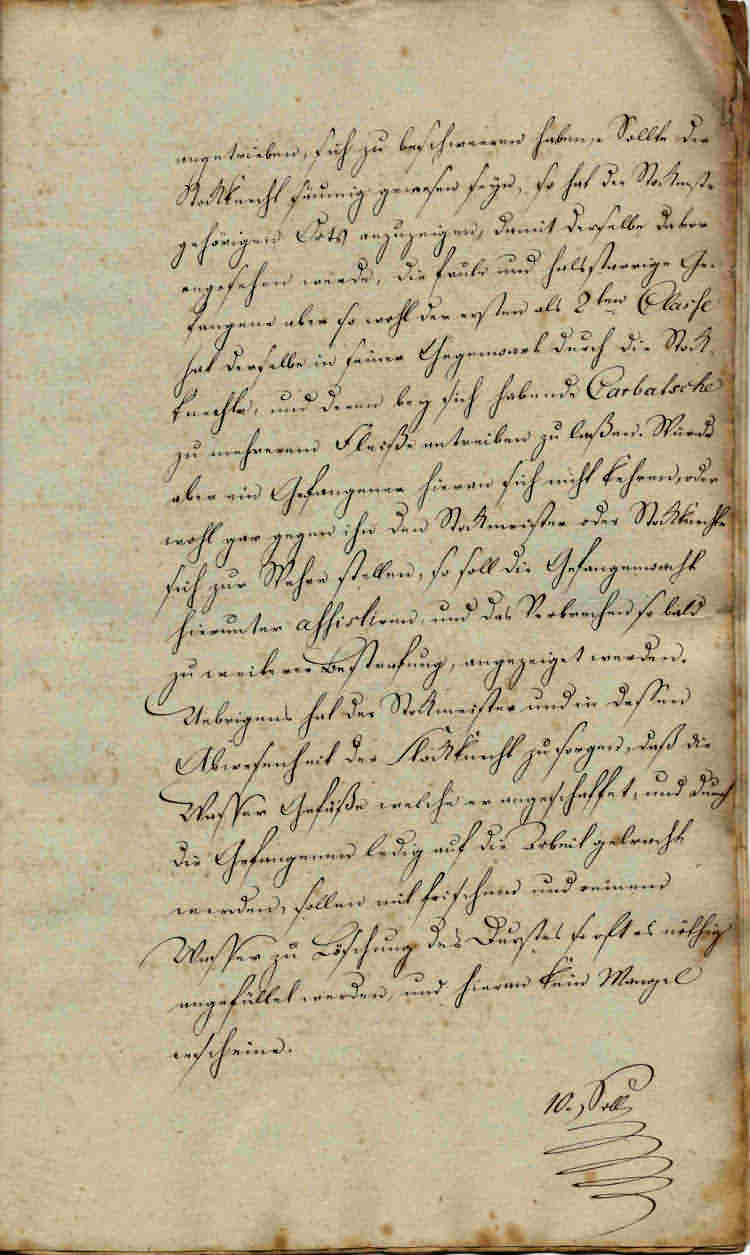 angetrieben, sich zu beschweeren haben. Sollte der
Stockknecht säumig gewesen seyn, so hat der Stockmstr
gehörigen Orts anzuzeigen, damit derselbe davor
angesehen werde, die faule und halsstarrige Ge-
fangene aber so wohl der ersten als 2ten Classe
hat derselbe in seiner Gegenwart durch die Stock-
knechte, und deren bey sich habende Carbatsche
zu mehrerem Fleiße antreiben zu laßen. Würde
aber ein Gefangener hieran sich nicht kehren, oder
wohl gar gegen ihn den Stockmeister oder Stockknechte
sich zur Wehre stellen, so soll die Gefangenwacht
hierunter assistiren, und das Verbrechen so bald
zu weiterer Bestrafung, angezeiget werden.
Uebrigens hat der Stockmeister und in deßen
Abwesenheit der Stockknecht zu sorgen, daß die
Wasser Gefäße welche er angeschaffet, und durch
die Gefangenen ledig auf die Arbeit gebracht
werden, sollen mit frischem und reinem
Wasser zu Löschung des Durstes so oft es nöthig
angefüllet werden, und hieran kein Mangel
erscheine.
10. Soll